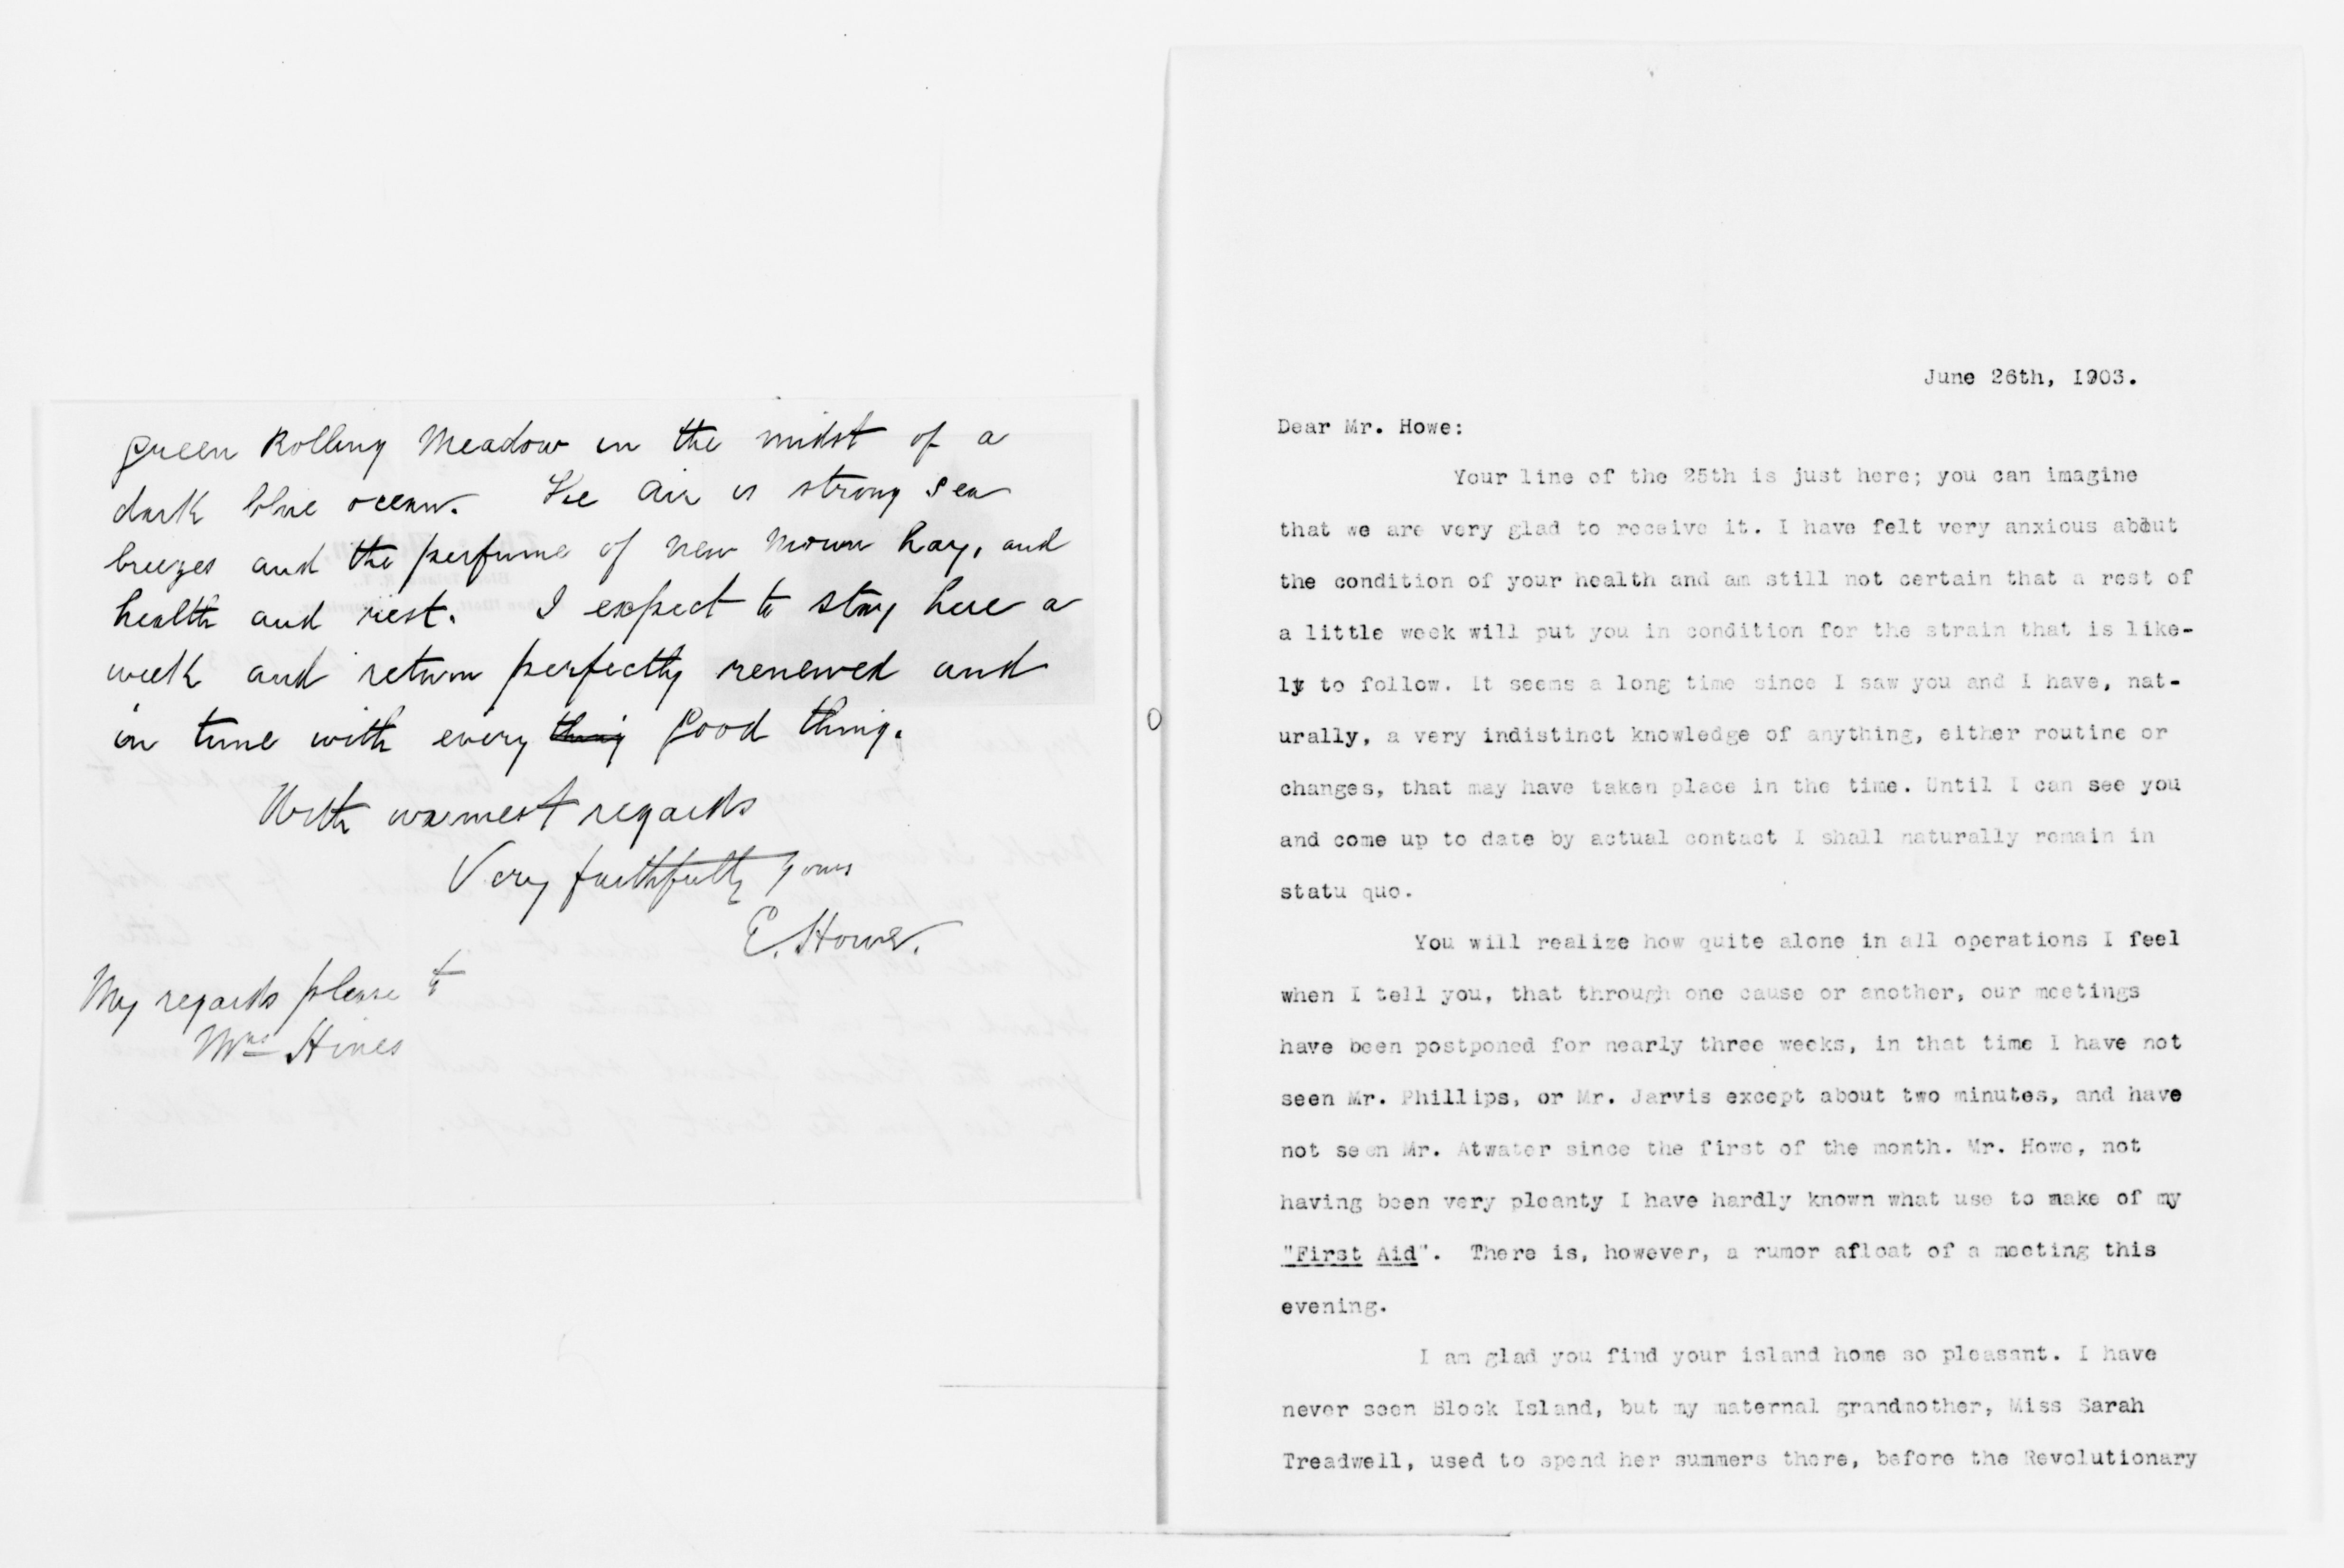 green Rolling Meadow in the midst of a
dark blue ocean. The air is strong sea
breezes and the perfume of new mown hay, and
health and rest. I expect to stay here a
week and return perfectly renewed and
in tune with every thing good thing.
With warmest regards
Very faithfully yours
E. Howe.
My regards please to
Mrs Hines
June 26th, 1903.
Dear Mr. Howe:
Your line of the 25th is just here; you can imagine
that we are very glad to receive it. I have felt very anxious about
the condition of your health and am still not certain that a rest of
a little week will put you in condition for the strain that is like-
ly to follow. It seems a long time since I saw you and I have, nat-
urally, a very indistinct knowledge of anything, either routine or
changes, that may have taken place in the time. Until I can see you
and come up to date by actual contact I shall naturally remain in
statu quo.
You will realize how quite alone in all operations I feel
when I tell you, that through one cause or another, our meetings
have been postponed for nearly three weeks, in that time I have not
seen Mr. Phillips, or Mr. Jarvis except about two minutes, and have
not seen Mr. Atwater since the first of the month. Mr. Howe, not
having been very pleanty I have hardly known what use to make of my
"First Aid". There is, however, a rumor afloat of a meeting this
evening.
I am glad you find your island home so pleasant. I have
never seen Block Island, but my maternal grandmother, Miss Sarah
Treadwell, used to spend her summers there, before the Revolutionary